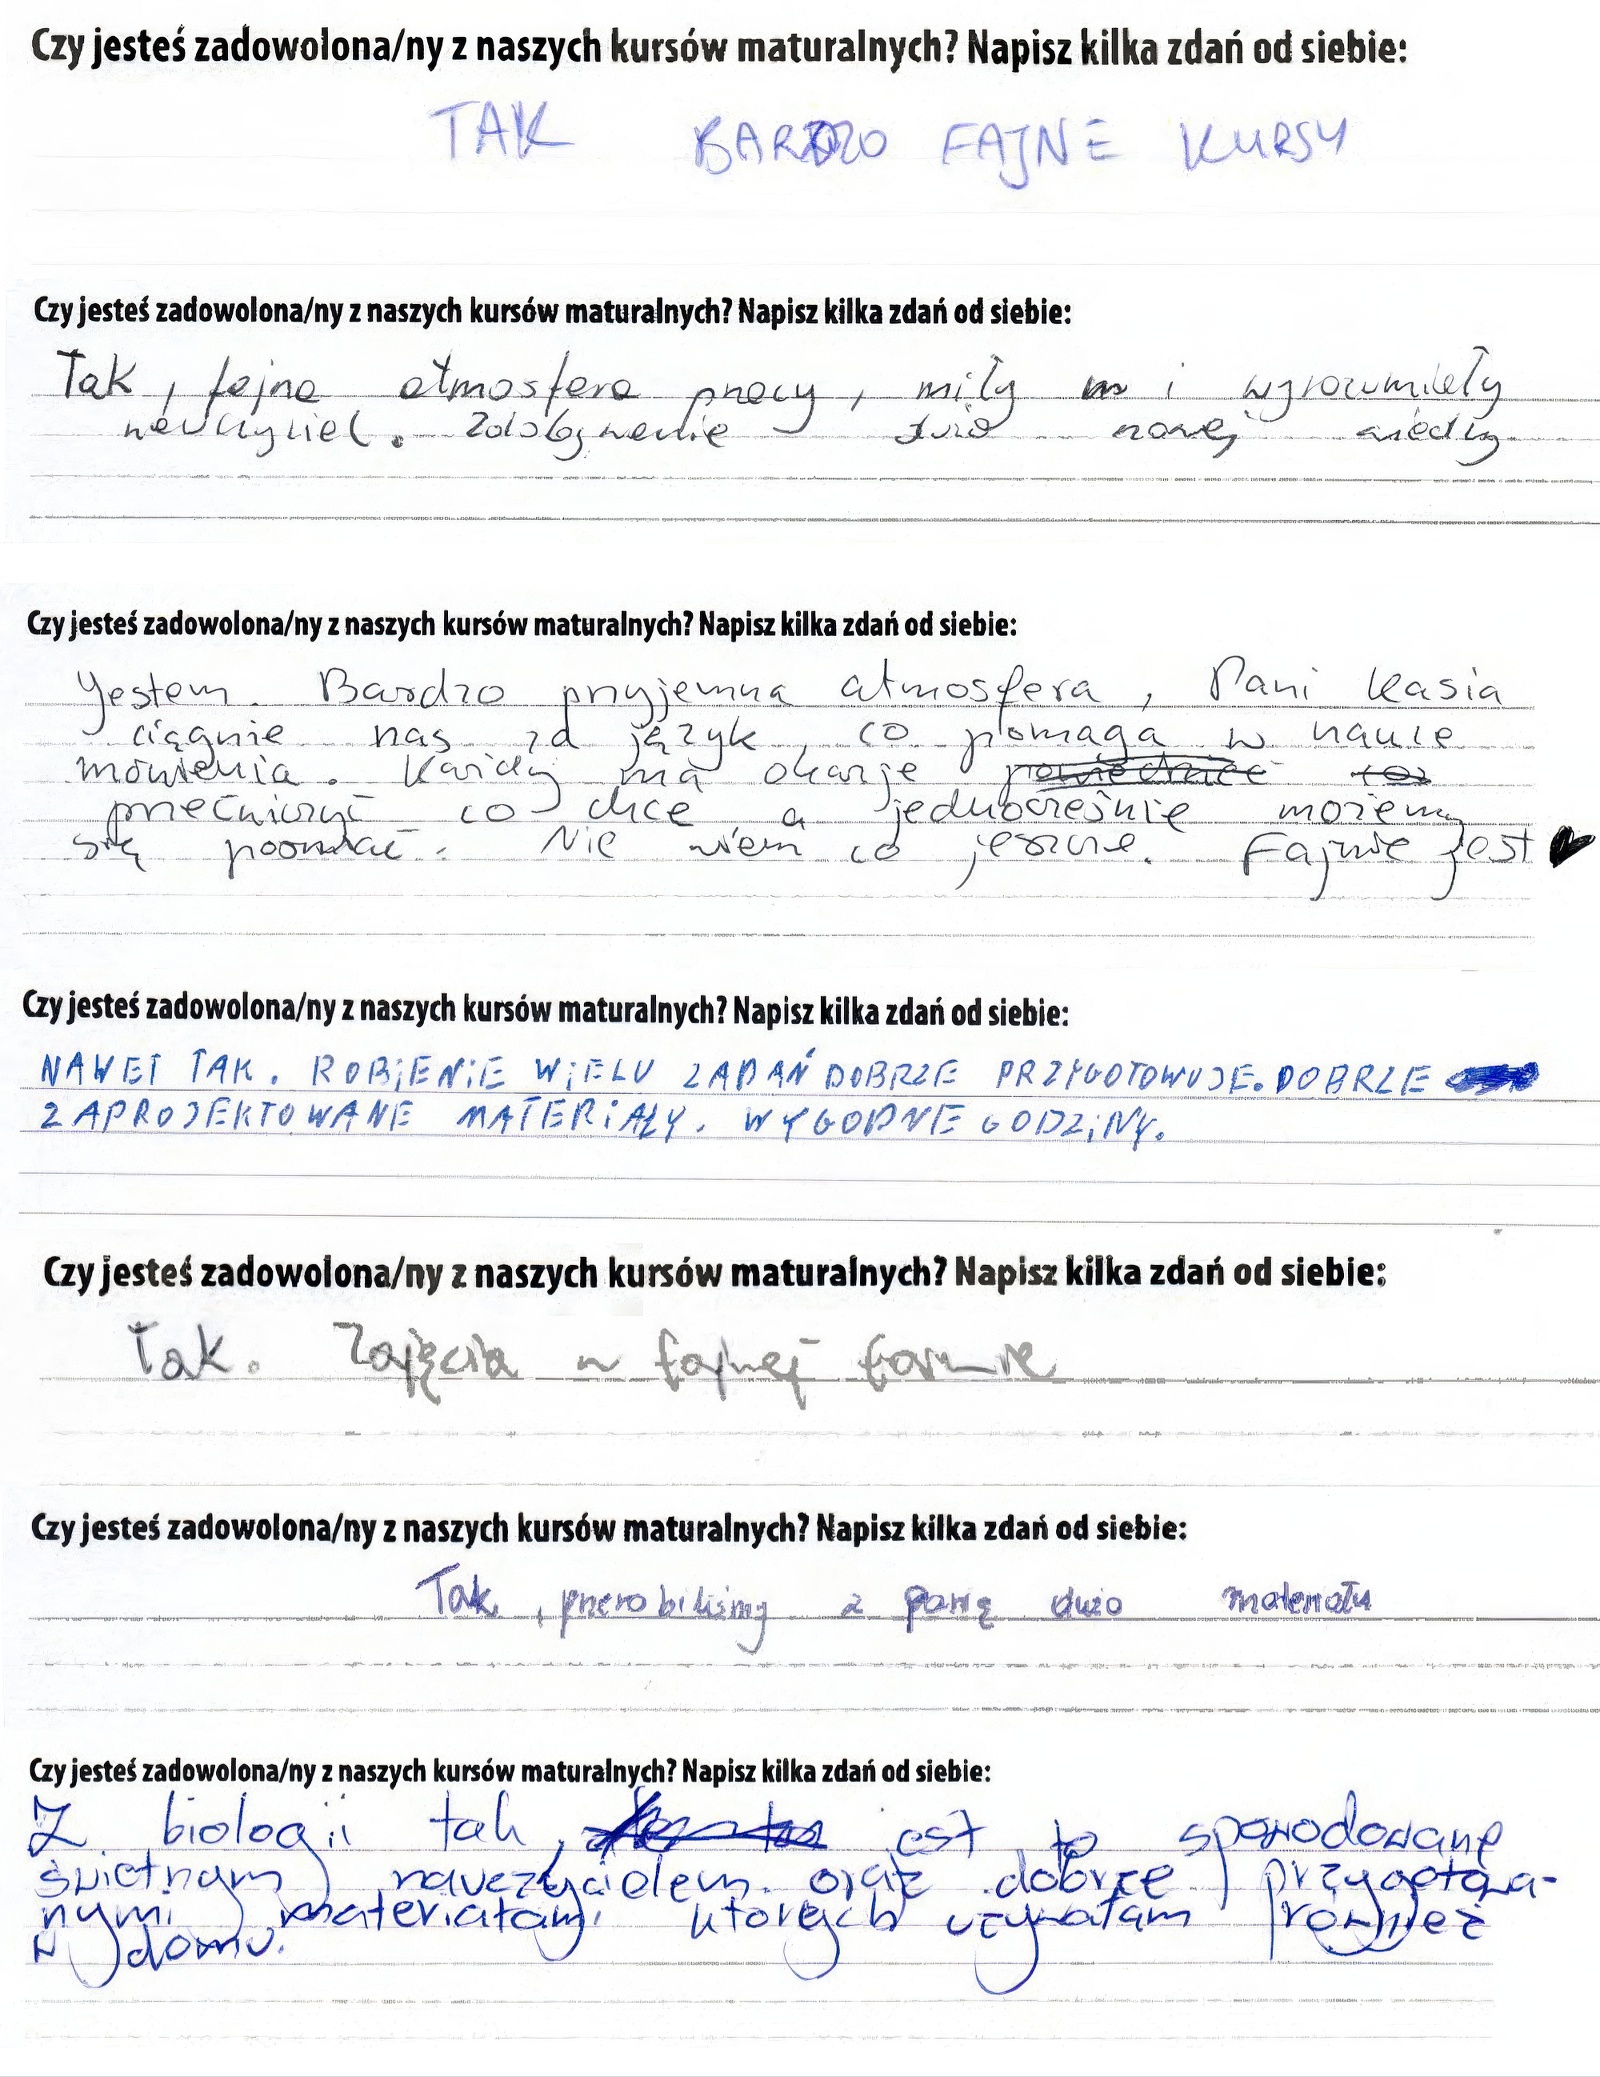 Czy jesteś zadowolona/ny z naszych kursów maturalnych? Napisz kilka zdań od siebie:
TAK BARDZO FAJNE KURSY
Czy jesteś zadowolona/ny z naszych kursów maturalnych? Napisz kilka zdań od siebie:
Tak, fajna atmosfera pracy, miły i wyrozumiały
nauczyciel. Zdobywanie dużo nowej wiedzy.
Czy jesteś zadowolona/ny z naszych kursów maturalnych? Napisz kilka zdań od siebie:
Jestem. Bardzo przyjemna atmosfera, Pani Kasia
ciągnie nas za język, co pomaga w nauce
mówienia. Każdy ma okazje
przećwiczyć co chce a jednocześnie możemy
się poznać. Nie wiem co jeszcze. Fajnie jest
Czy jesteś zadowolona/ny z naszych kursów maturalnych? Napisz kilka zdań od siebie:
NAWET TAK. ROBIENIE WIELU ZADAŃ DOBRZE PRZYGOTOWUJE. DOBRZE
ZAPROJEKTOWANE MATERIAŁY. WYGODNE GODZINY.
Czy jesteś zadowolona/ny z naszych kursów maturalnych? Napisz kilka zdań od siebie:
Tak. Zajęcia w fajnej formie
Czy jesteś zadowolona/ny z naszych kursów maturalnych? Napisz kilka zdań od siebie:
Tak, przerobiliśmy z panią dużo materiału
Czy jesteś zadowolona/ny z naszych kursów maturalnych? Napisz kilka zdań od siebie:
Z biologii tak, jest to spowodowane
świetnym nauczycielem oraz dobrze przygotowa-
nymi materiałami których używałam również
w domu.